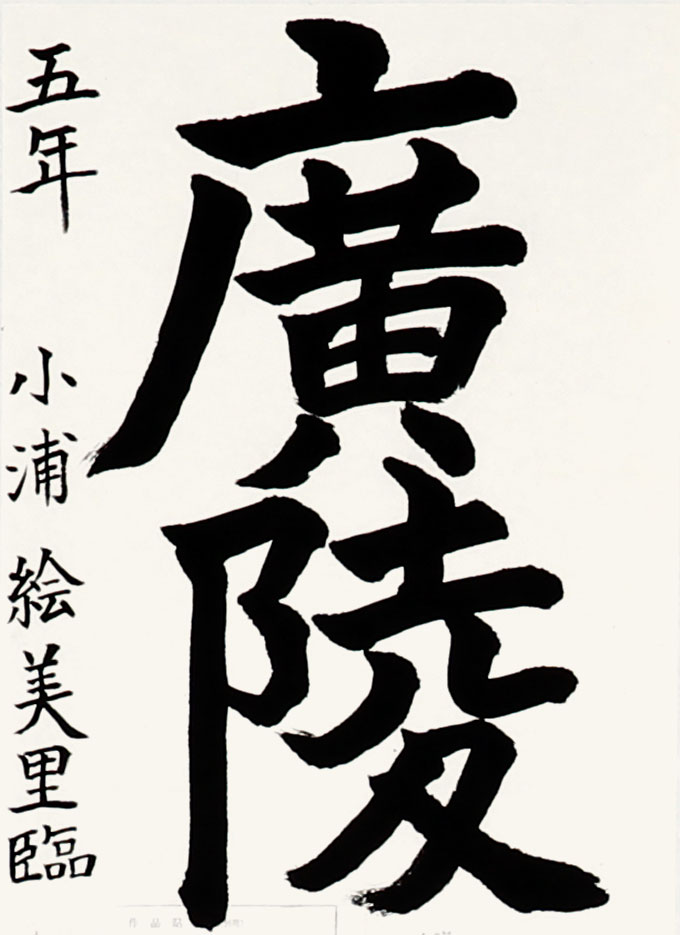 廣陵
五年 小浦 絵美里臨